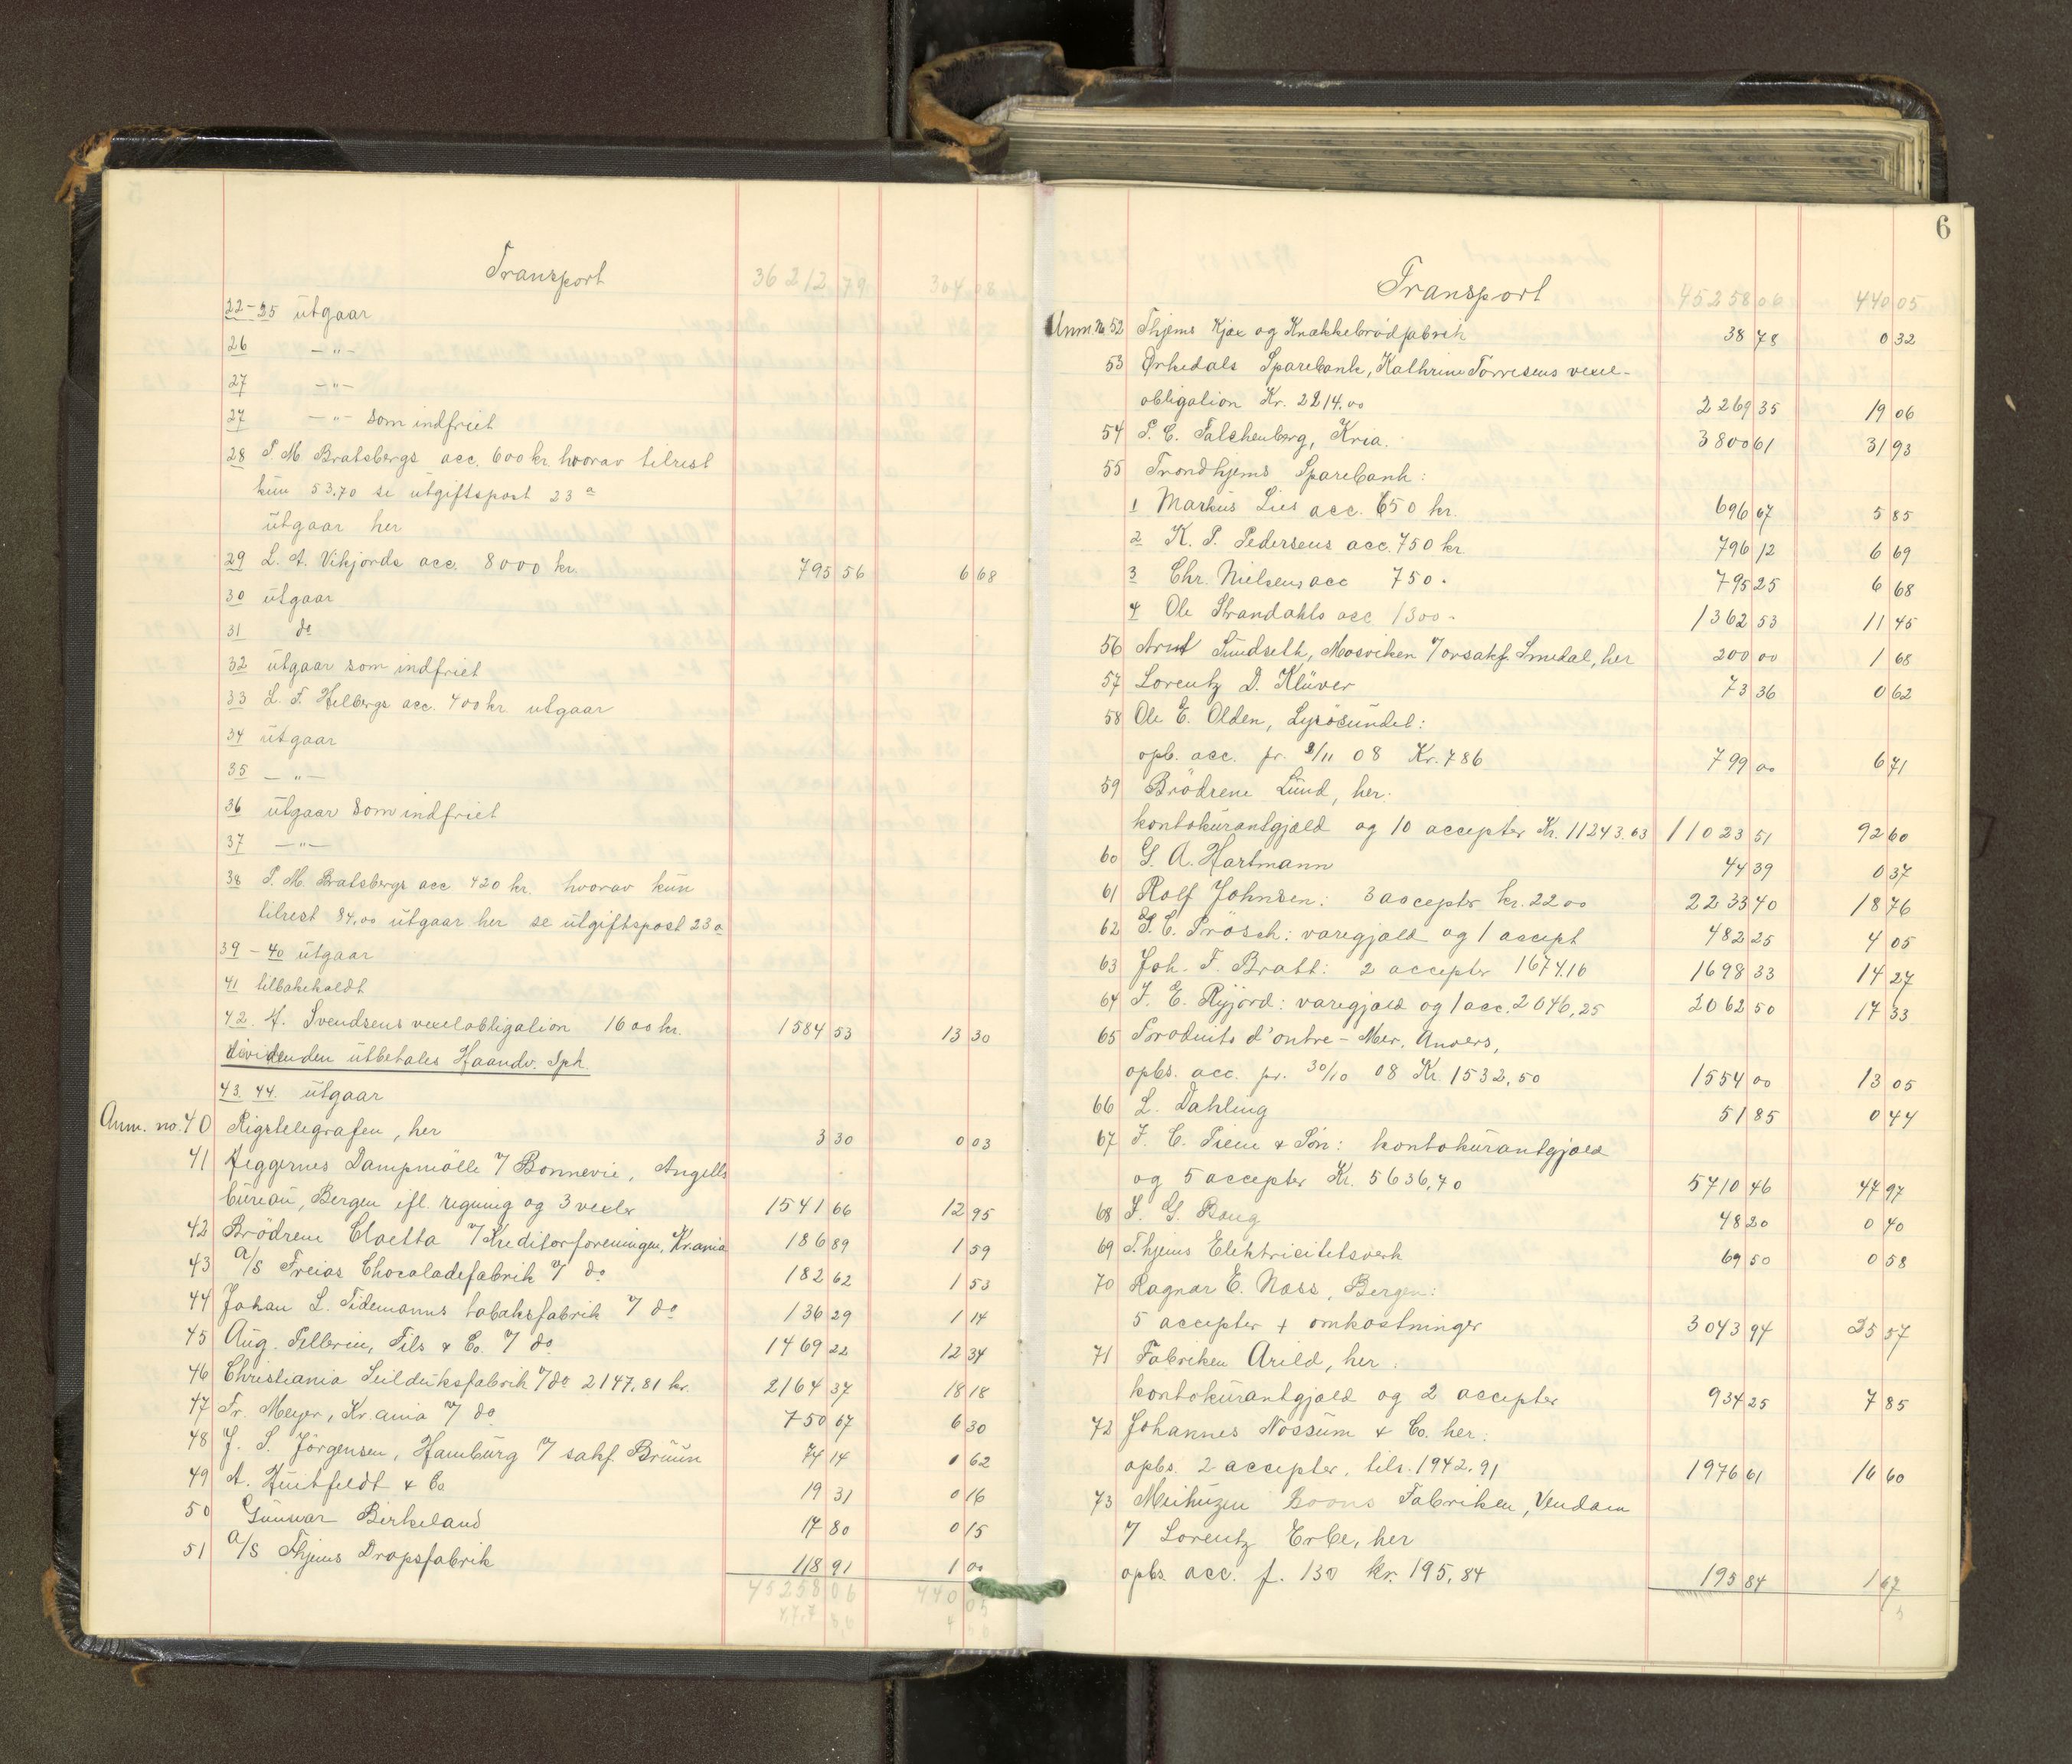 Transport 36212 79 304 08
22-25 ütgaar
26 -"-
27 -"-
27 -"- som indfriet
28 P. M. Bratsbergs acc. 600 kr. hvorav tilrest
kün 53.70 se ütgiftspost 23 a
ütgaar her
29 L. A. Vikjords acc. 8000 kr. 795 56 6 68
30 ütgaar
31 do
32 ütgaar som indfriet
33 L. F. Helbergs acc. 400 kr. utgaar
34 ütgaar
35 -"-
36 ütgaar som indfriet
37 -"-
38 P. M. Bratsbergs acc 420 kr. hvorav kün
tilrest 84,00 ütgaar her se ütgiftspost 23 a
39-40 ütgaar
41 tilbakekaldt
42. A. Svendsens vexelobligation 1600 kr. 1584 53 13 30
dividenden ütbetales Haandv. Spk.
43. 44. ütgaar
Anm. no. 40 Rigstelegrafen, her 3 30 0 03
41 Aeggernes Dampmölle v/ Bonnevie, Angells
büreaü, Bergen ifl. regning og 3 vexler 1541 66 12 95
42 Brödrene Cloetta v/ Kreditorforeningen, Kr.ania 186 89 1 59
43 a/s Freias Chocoladefabrik v/ do 182 62 1 53
44 Johan L. Tidemanns tobaksfabrik v/ do 136 29 1 14
45 Aüg. Pellerin, Fils & Co. v/ do 1469 22 12 34
46 Christiania Seildüksfabrik v/ do 2147,81 kr. 2164 37 18 18
47 Fr. Meyer, Kr.ania v/ do 750 67 6 30
48 J. S. Jörgensen, Hambürg v/ sakf. Brüün 74 14 0 62
49 A. Hüitfeldt & Co 19 31 0 16
50 Günvar Birkeland 17 80 0 15
51 a/s Thjems Dropsfabrik 118 91 1 00
45258 06 440 05
6
Transport 45258 06 440 05
Anm. No 52 Thjems Kjæx og Knækkebrödfabrik 38 78 0 32
53 Orkedals Sparebank, Kathrine Torresens vexel-
obligation Kr. 2214.00 2269 35 19 06
54 P. C. Falchenberg, Kria. 3800 61 31 93
55 Trondhjems Sparebank:
1 Marküs Lies acc. 650 kr. 696 67 5 85
2 K. P. Pedersens acc. 750 kr. 796 12 6 69
3 Chr. Nielsens acc 750 " 795 25 6 68
4 Ole Strandahls acc 1300 " 1362 53 11 45
56 Arnt Sündseth, Mosviken v/ orsakf. Smedal, her 200 00 1 68
57 Lorentz D. Klüver 73 36 0 62
58 Ole E. Olden, Lysösündet:
opb. acc. pr. 3/11 08 Kr. 786 799 00 6 71
59 Brödrene Lünd, her.
kontokürantgjæld og 10 accepter Kr. 11243.63 11023 51 92 60
60 G. A. Hartmann 44 39 0 37
61 Rolf Johnsen: 3 accepter kr. 2200 2233 40 18 76
62 P. C. Prösch: varegjæld og 1 accept 482 25 4 05
63 Joh. F. Bratt: 2 accepter 1674.16 1698 33 14 27
64 J. E. Ryjord: varegjæld og 1 acc. 2046,25 2062 50 17 33
65 Produits d'outre-Mer, Anvers,
opbs. acc. pr. 30/10 08 Kr. 1532,50 1554 00 13 05
66 L. Dahling 51 85 0 44
67 J. C. Piene & Sön: kontokürantgjæld
og 5 accepter Kr. 5636,70 5710 46 47 97
68 J. G. Baug 48 20 0 40
69 T.hjems Elektricitetsverk 69 50 0 58
70 Ragnar E. Næss, Bergen:
5 accepter + omkostninger 3043 94 25 57
71 Fabriken Arild, her:
kontokürantgjæld og 2 accepter 934 25 7 85
72 Johannes Nossüm & Co. her:
opbs. 2 accepter, tils. 1942.91 1976 61 16 60
73 Meihüzen Boons Fabriken, Vendam
v/ Lorentz Erbe, her
opbs. acc. f. 130 kr. 195,84 195 84 1 67